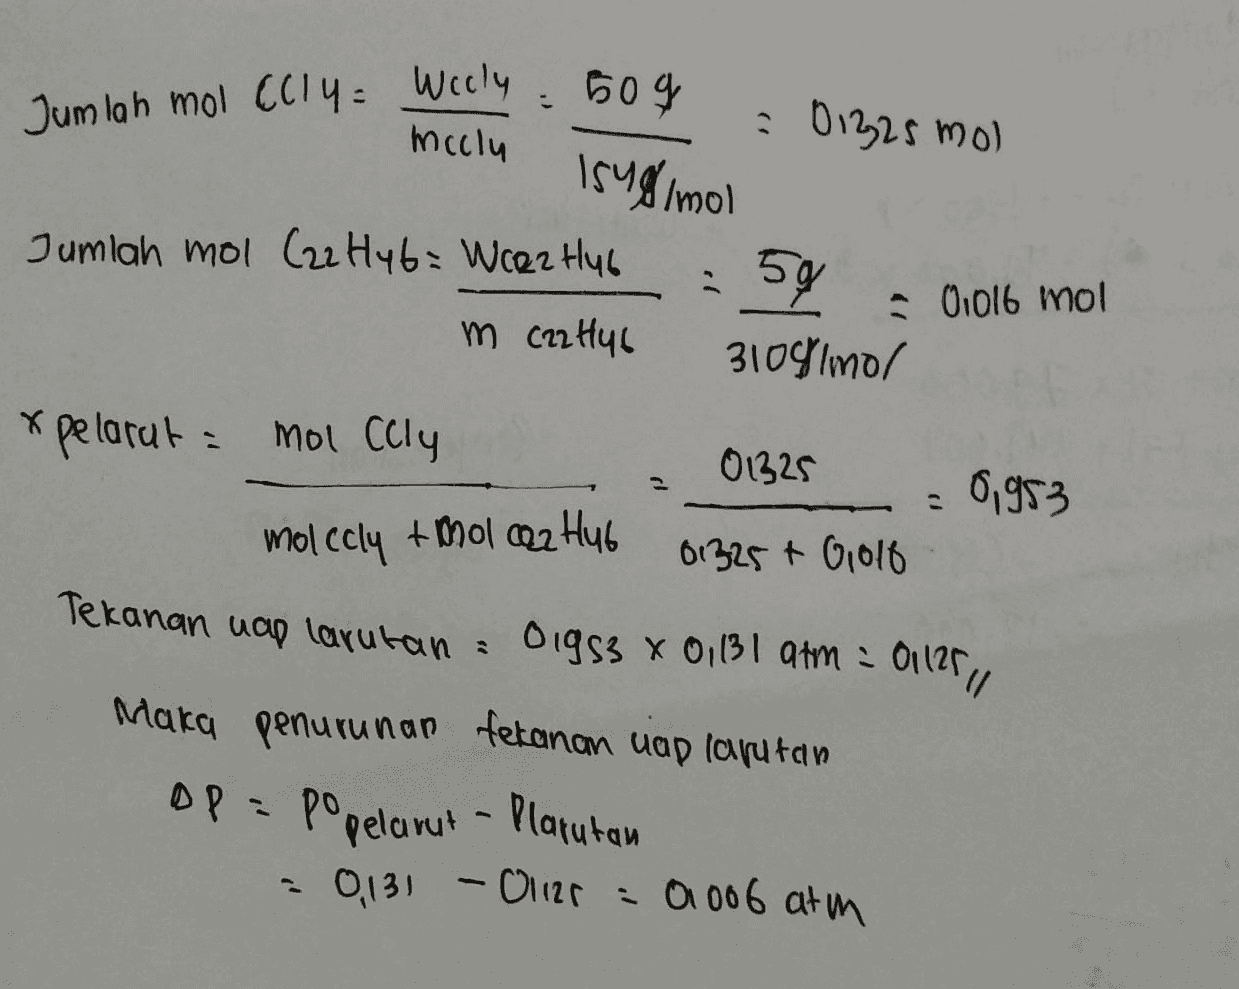 Jumlah mol CCl4 = WCCl4 / mCCl4 = 50 g / 154 g/mol = 0,325 mol
Jumlah mol C22H46 = WC22H46 / m C22H46 = 5 g / 310 g/mol = 0,016 mol
x pelarut = mol CCl4 / mol CCl4 + mol C22H46 = 0,325 / 0,325 + 0,016 = 0,953
Tekanan uap larutan = 0,953 x 0,131 atm = 0,125 //
Maka penurunan tekanan uap larutan
ΔP = Po pelarut - Plarutan
= 0,131 - 0,125 = 0,006 atm